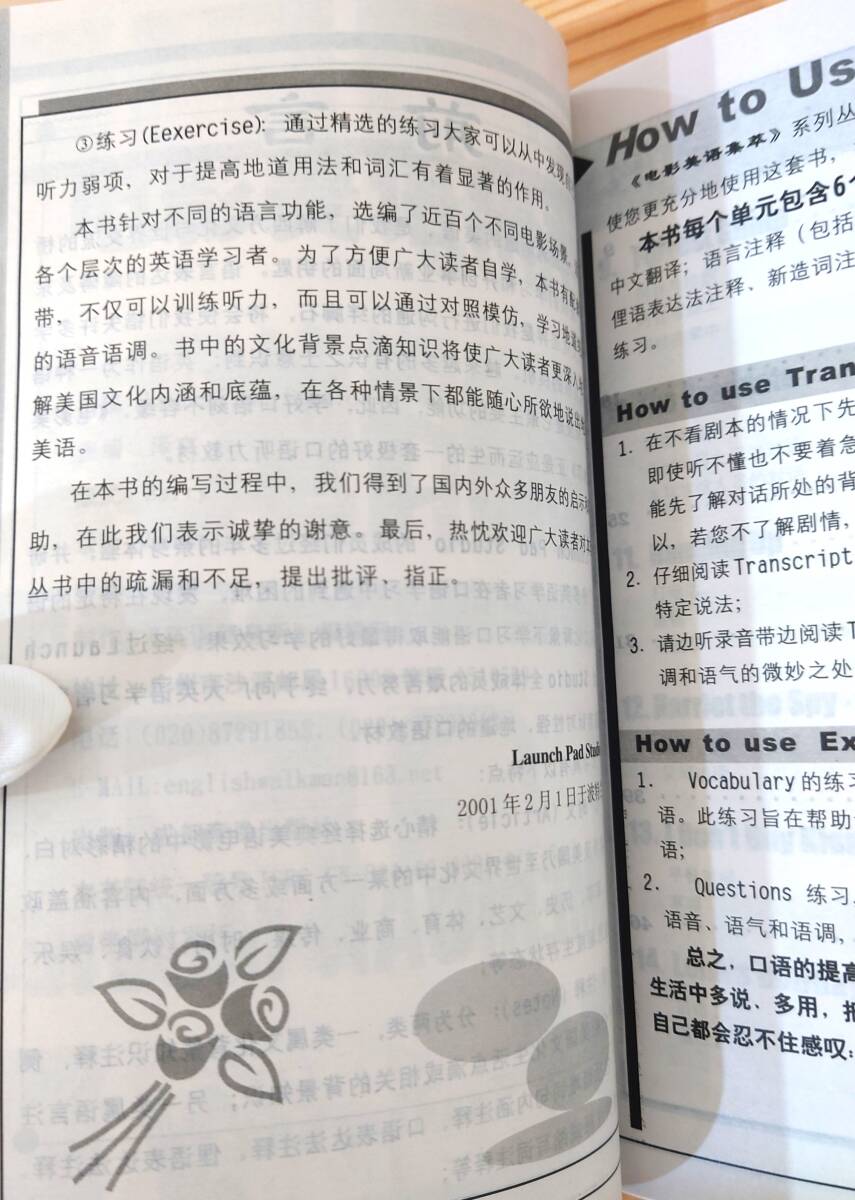 ③练习(Eexercise): 通过精选的练习大家可以从中发现
听力弱项, 对于提高地道用法和词汇有着显著的作用。
本书针对不同的语言功能, 选编了近百个不同电影场景,
各个层次的英语学习者。为了方便广大读者自学, 本书有配
带, 不仅可以训练听力, 而且可以通过对照模仿, 学习地道
的语音语调。书中的文化背景点滴知识将使广大读者更深入
解美国文化内涵和底蕴, 在各种情景下都能随心所欲地说出
美语。
在本书的编写过程中, 我们得到了国内外众多朋友的启示
助, 在此我们表示诚挚的谢意。最后, 热忱欢迎广大读者对
丛书中的疏漏和不足, 提出批评、指正。
Launch Pad Studi
2001年2月1日于波
How to Us
《电影英语集萃》系列丛
使您更充分地使用这套书,
本书每个单元包含6个
中文翻译; 语言注释 (包括
俚语表达法注释、新造词注
练习。
How to use Tran
1. 在不看剧本的情况下先
即使听不懂也不要着急
能先了解对话所处的背
以, 若您不了解剧情,
2. 仔细阅读Transcript
特定说法;
3. 请边听录音带边阅读T
调和语气的微妙之处
How to use Ex
1. Vocabulary的练习
语。此练习旨在帮助
语;
2. Questions 练习
语音、语气和语调,
总之, 口语的提高
生活中多说、多用, 把
自己都会忍不住感叹: